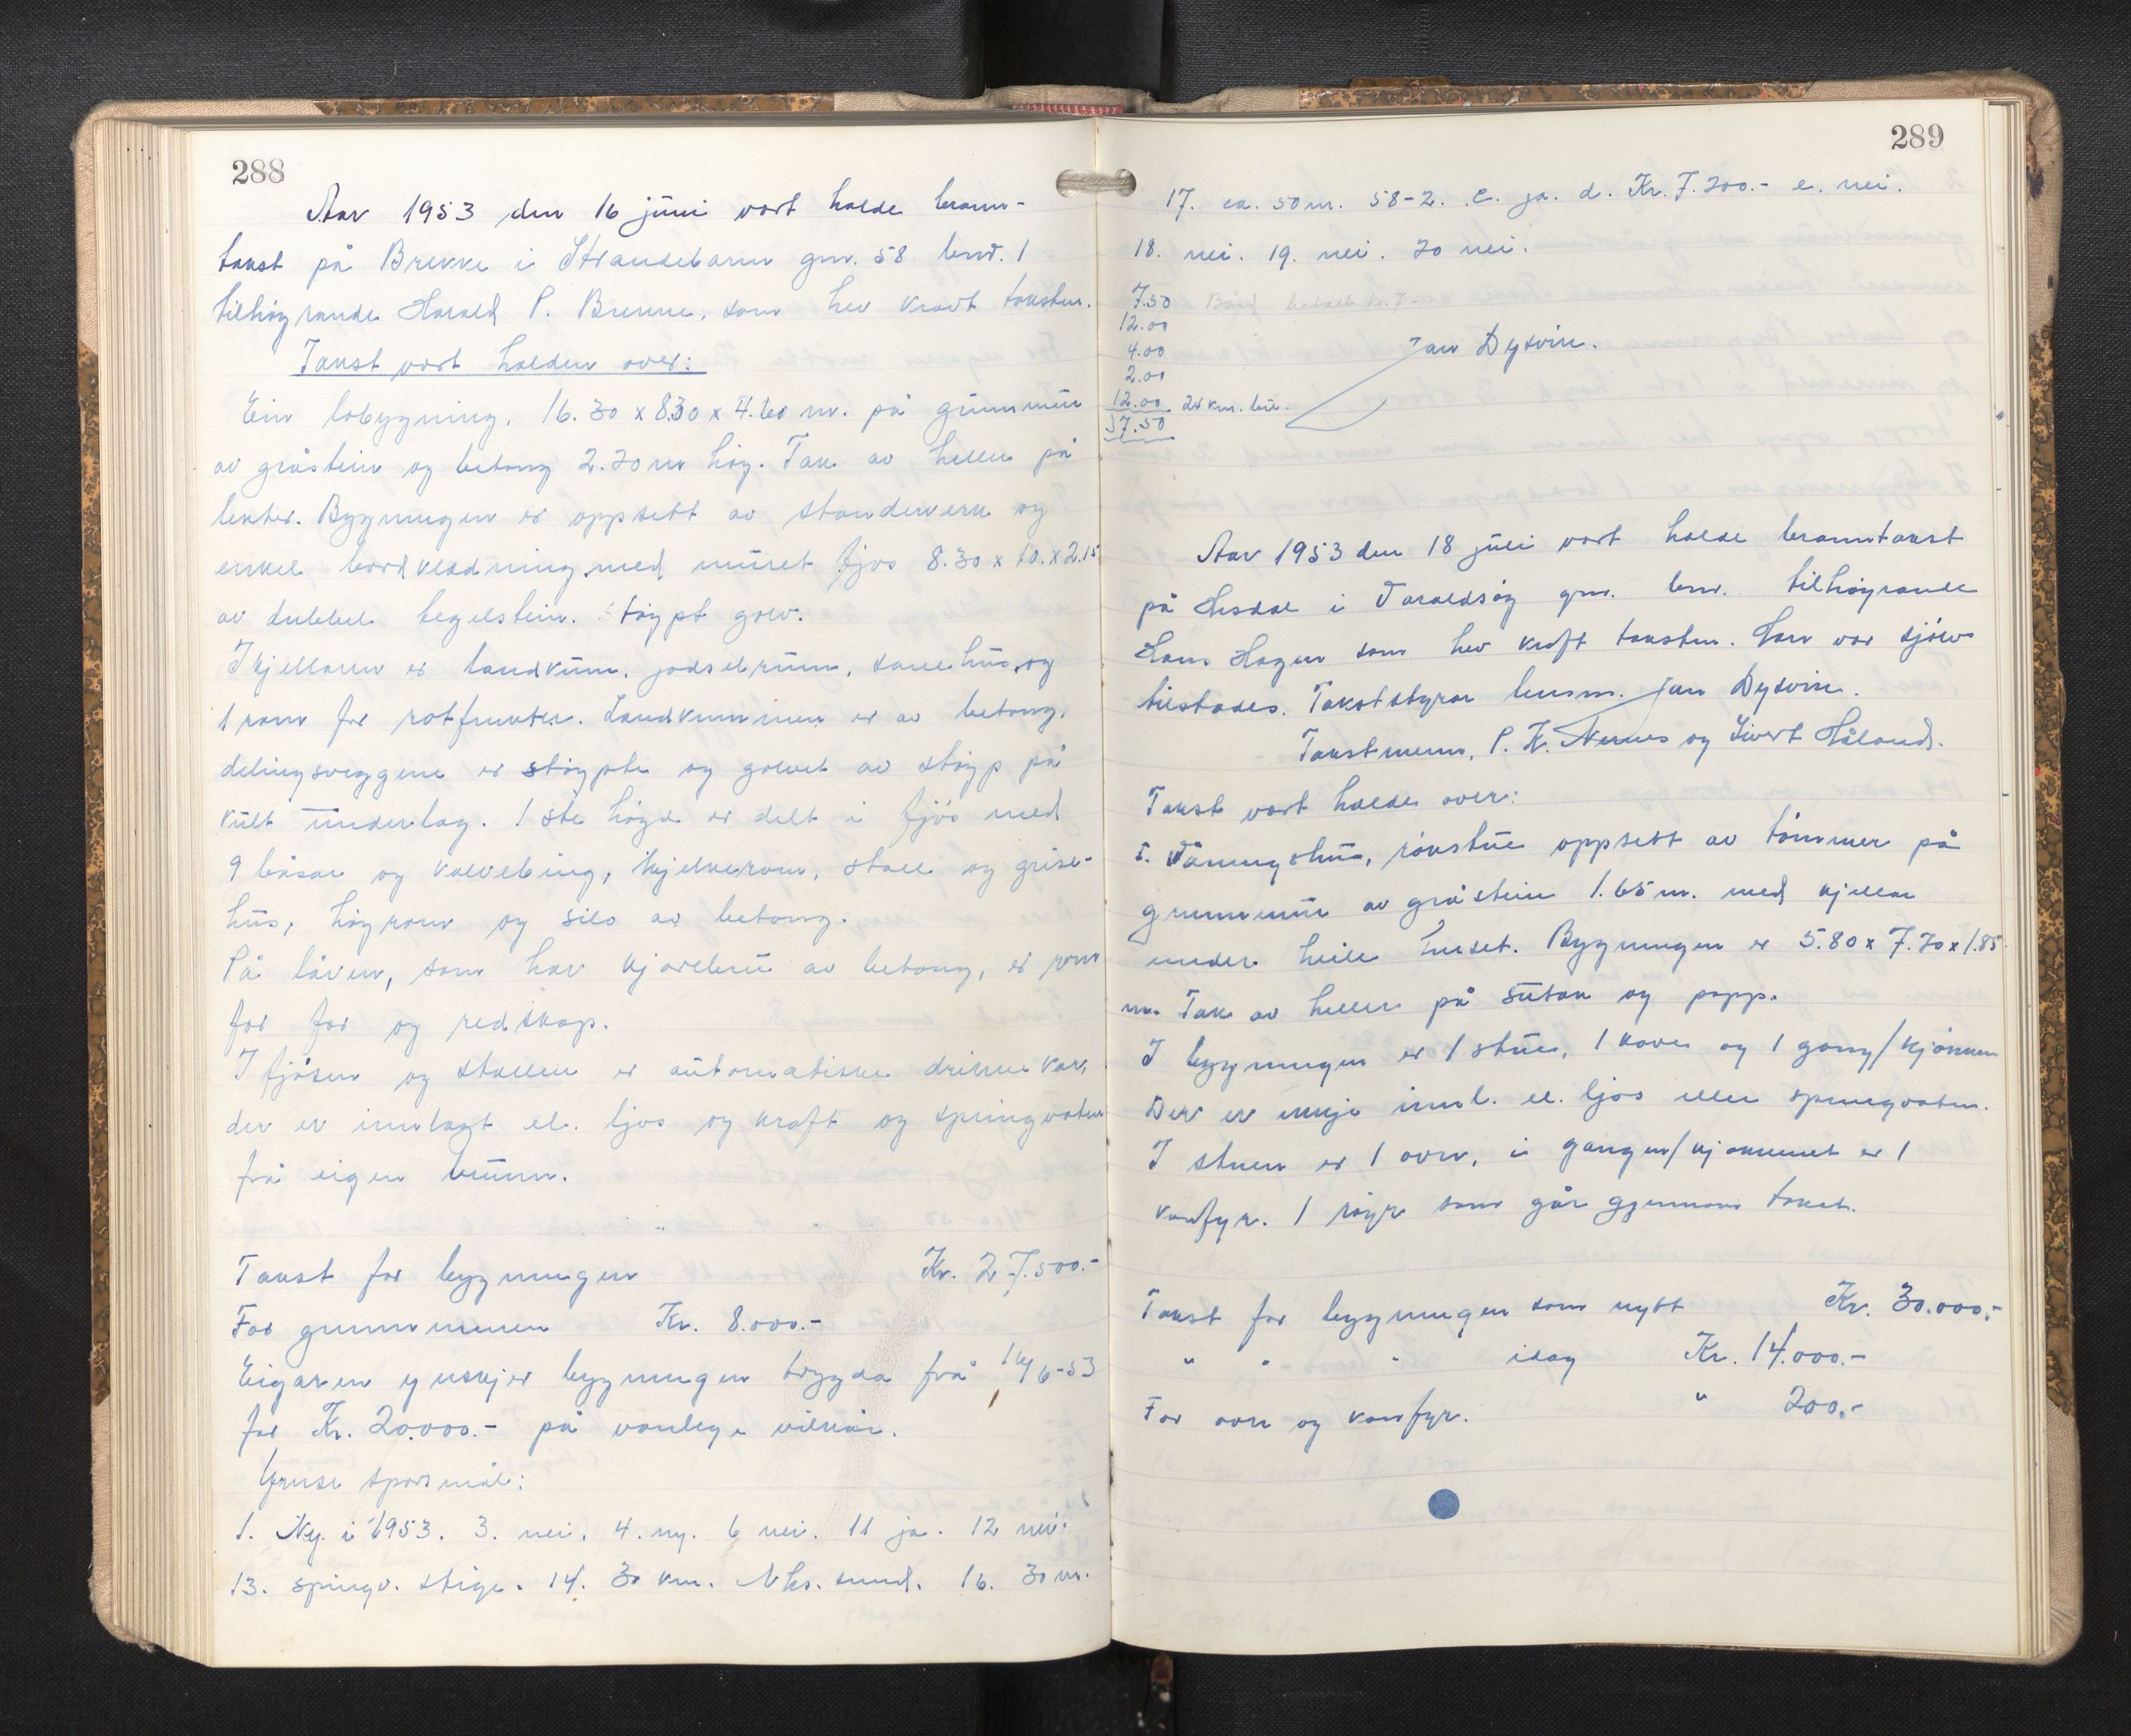 288
Aar 1953 den 16 juni vart halde brann-
takst på Brekke i Strandebarm gnr. 58 bnr. 1
tilhøyrande Harald P. Brenne, som hev kravt taksten.
Takst vart halden over:
Ein lobygning, 16.30 x 8.30 x 4.60 m. på grunnmur
av gråstein og betong 2.70 m høg. Tak av heller på
lekter. Bygningen er oppsett av standerverk og
enkel bordkledning, med muret fjos 8.30 x 10. x 2.15
av dubbel teglstein. Støypt golv.
I kjellaren er landkum, gjødselrum, sauehus, og
1 rom for rotfrukter. Landkummen er av betong,
delingsveggene er støypte og golvet av støyp på
kult underlag. 1ste høgd er delt i fjøs med
9 båsar og kalvebing, mjelkerom, stall og grise-
hus, høyrom og silo av betong.
På låven, som har kjørebru av betong, er rom
for for og redskap.
I fjøsen og stallen er automatiske drikkekar,
der er innlagt el. ljos og kraft og springvatn
frå eigen brunn.
Takst for bygningen Kr. 27.500.-
For grunnmuren Kr. 8.000.-
Eigaren ynskjer bygningen trygda frå 16/6-53
for Kr. 20.000.- på vanlege vilkår.
Ymse spørsmål:
1. Ny. i 1953. 3. nei. 4. ny. 6 nei. 11 ja. 12 nei.
13. springv. stige. 14. 30 km. Nhs.sund. 16. 30 m.
289
17. ca. 50 m. 58-2. c. ja. d. Kr. 7.200.- e. nei.
18. nei. 19. nei. 20 nei.
7.50
12.00
4.00
Jan Dysvin.
2.00
12.00 24 km. bil.
37.50
Aar 1953 den 18 juli vart halde branntakst
på Hisdal i Varaldsøy gnr. bnr. tilhøyrande
Hans Hagen som hev kraft taksten. Han var sjølv
tilstades. Takststyrar lensm. Jan Dysvin.
Takstmenn, P. K. Nernes og Sivert Håland.
Takst vart halde over:
1. Våningshus, røkstue oppsett av tømmer på
grunnmur av gråstein 1.65 m. med kjellar
under heile huset. Bygningen er 5.80 x 7.70 x 1.85
m. Tak av heller på sutak og papp.
I bygningen er 1 stue, 1 kove og 1 gang/kjøkken
Der er inkje innl. el. ljos eller springvatn.
I stuen er 1 ovn, i gangen/kjøkkenet er 1
komfyr. 1 røyr som går gjennom taket.
Takst for bygningen som nytt Kr. 30.000,-
" " " idag Kr. 14.000.-
For ovn og komfyr. " 200.-